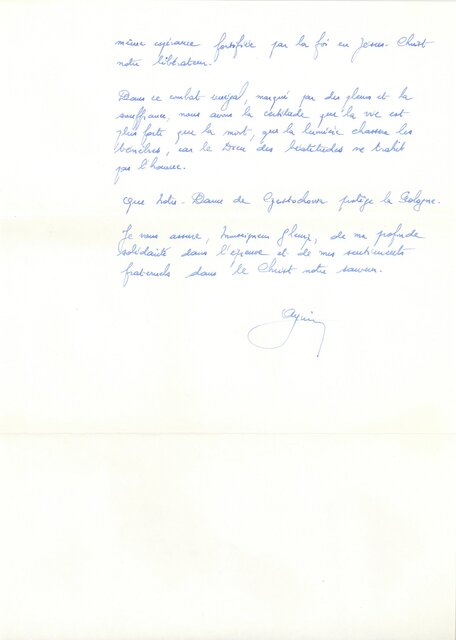 même espérance fortifiée par la foi en Jésus-Christ
notre libérateur.
Dans ce combat inégal, marqué par des pleurs et la
souffrance, nous avons la certitude que la vie est
plus forte que la mort, que la lumière chassera les
ténèbres, car le Dieu des béatitudes ne trahit
pas l'homme.
Que Notre-Dame de Czestochowa protège la Pologne.
Je vous assure, Monseigneur Glemp, de ma profonde
solidarité dans l'épreuve et de mes sentiments
fraternels dans le Christ notre sauveur.